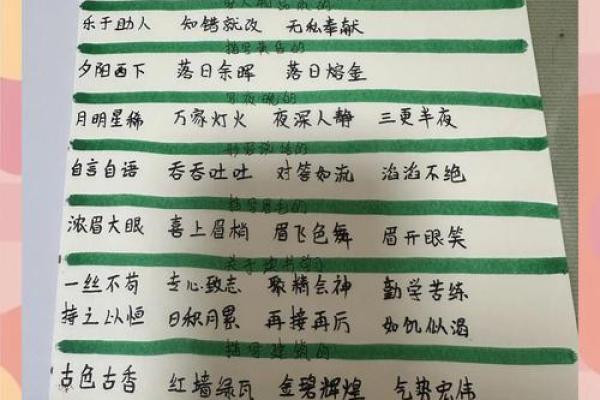 乐于助人 知错就改 无私奉献
描写黄昏的
夕阳西下 落日余晖 落日熔金
写夜晚的
月明星稀 万家灯火 夜深人静 三更半夜
形容说话的
自言自语 吞吞吐吐 对答如流 滔滔不绝
描写眉毛的
浓眉大眼 喜上眉梢 眉飞色舞 眉开眼笑
一丝不苟 专心致志 聚精会神 勤学苦练
持之以恒 日积月累 再接再厉 如饥似渴
描写建筑的
古色古香 红墙绿瓦 金碧辉煌 气势宏伟